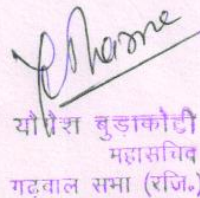 योगेश बुड़ाकोटी
महासचिव
गढ़वाल सभा (रजि०)